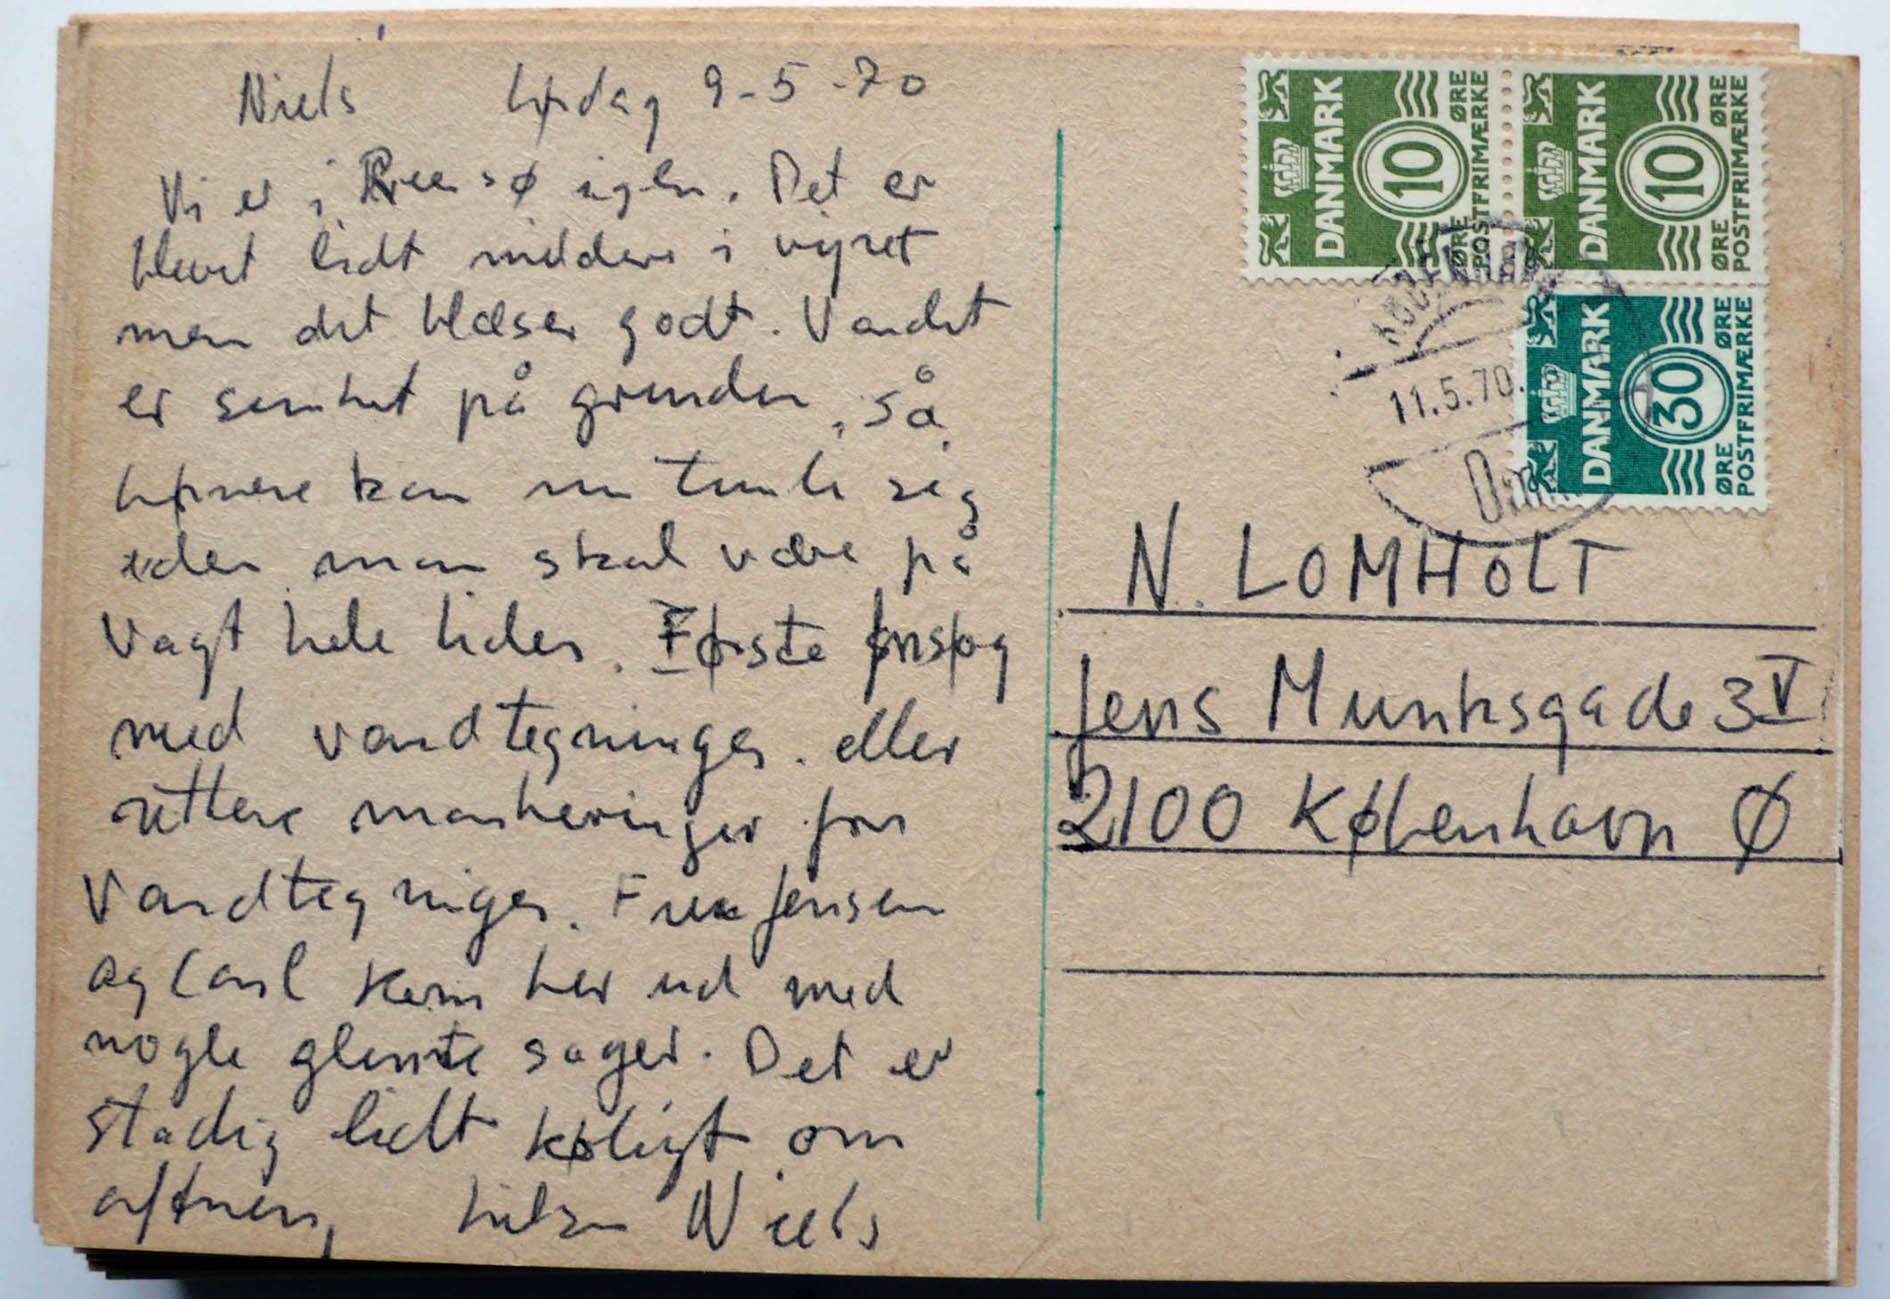 Niels lørdag 9-5-70
Vi er i Reersø igen. Det er
blevet lidt mildere i vejret
men det blæser godt. Vandet
er sunket på grunden, så
børnene kan nu tumle sig
uden man skal være på
vagt hele tiden. Første forsøg
med vandtegninger. eller
rettere markeringer for
vandtegninger. Fru Jensen
og Carl kom her ud med
nogle glemte sager. Det er
stadig lidt køligt om
aftnen, hilsen Niels
DANMARK 10 ØRE ØRE POSTFRIMÆRKE
DANMARK 10 ØRE ØRE POSTFRIMÆRKE
DANMARK 30 ØRE ØRE POSTFRIMÆRKE
11.5.70.
N. LOMHOLT
Jens Munksgade 3 V
2100 København Ø